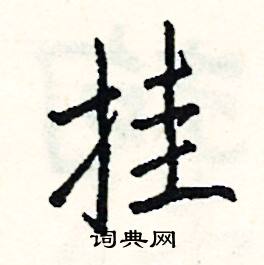 挂
词典网